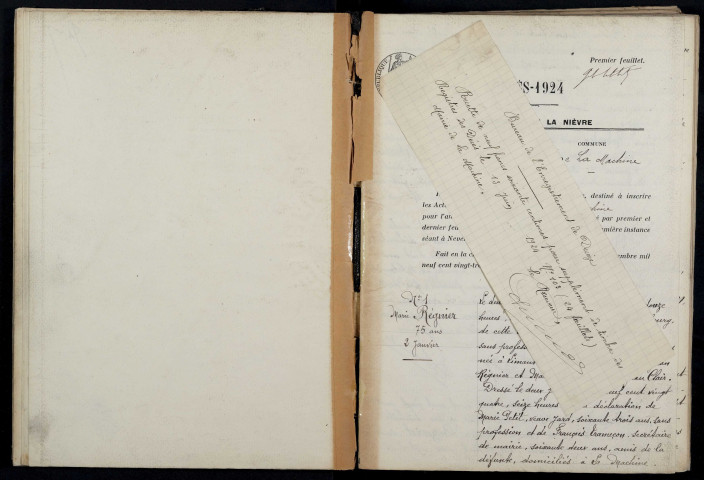 Premier feuillet.
ÈS-1924
LA NIÈVRE
COMMUNE
La Machine
Bureau de l'Enregistrement de Decize
Recette de neuf francs soixante centimes pour supplément de timbre des
Registres des Décès
le 13 juin 1924 N° 102 (24 feuillets)
Mairie de La Machine.
Le Receveur,
, destiné à inscrire
les Act
pour l'an
par premier et
dernier feu
première instance
séant à Neve
Fait en la c
embre mil
neuf cent vingt-tr
N° 1
Marie Regnier
75 ans
2 Janvier
Le deux
heures
de cette
sans profess
née à Limau
Régnier et Ma
Dressé le deux
uf cent vingt
quatre, seize heures
déclaration de
Marie Petit, veuve Jard, soixante trois ans, sans
profession et de François Crameçon, secrétaire
de mairie, soixante deux ans, amis de la
défunte, domiciliés à La Machine.